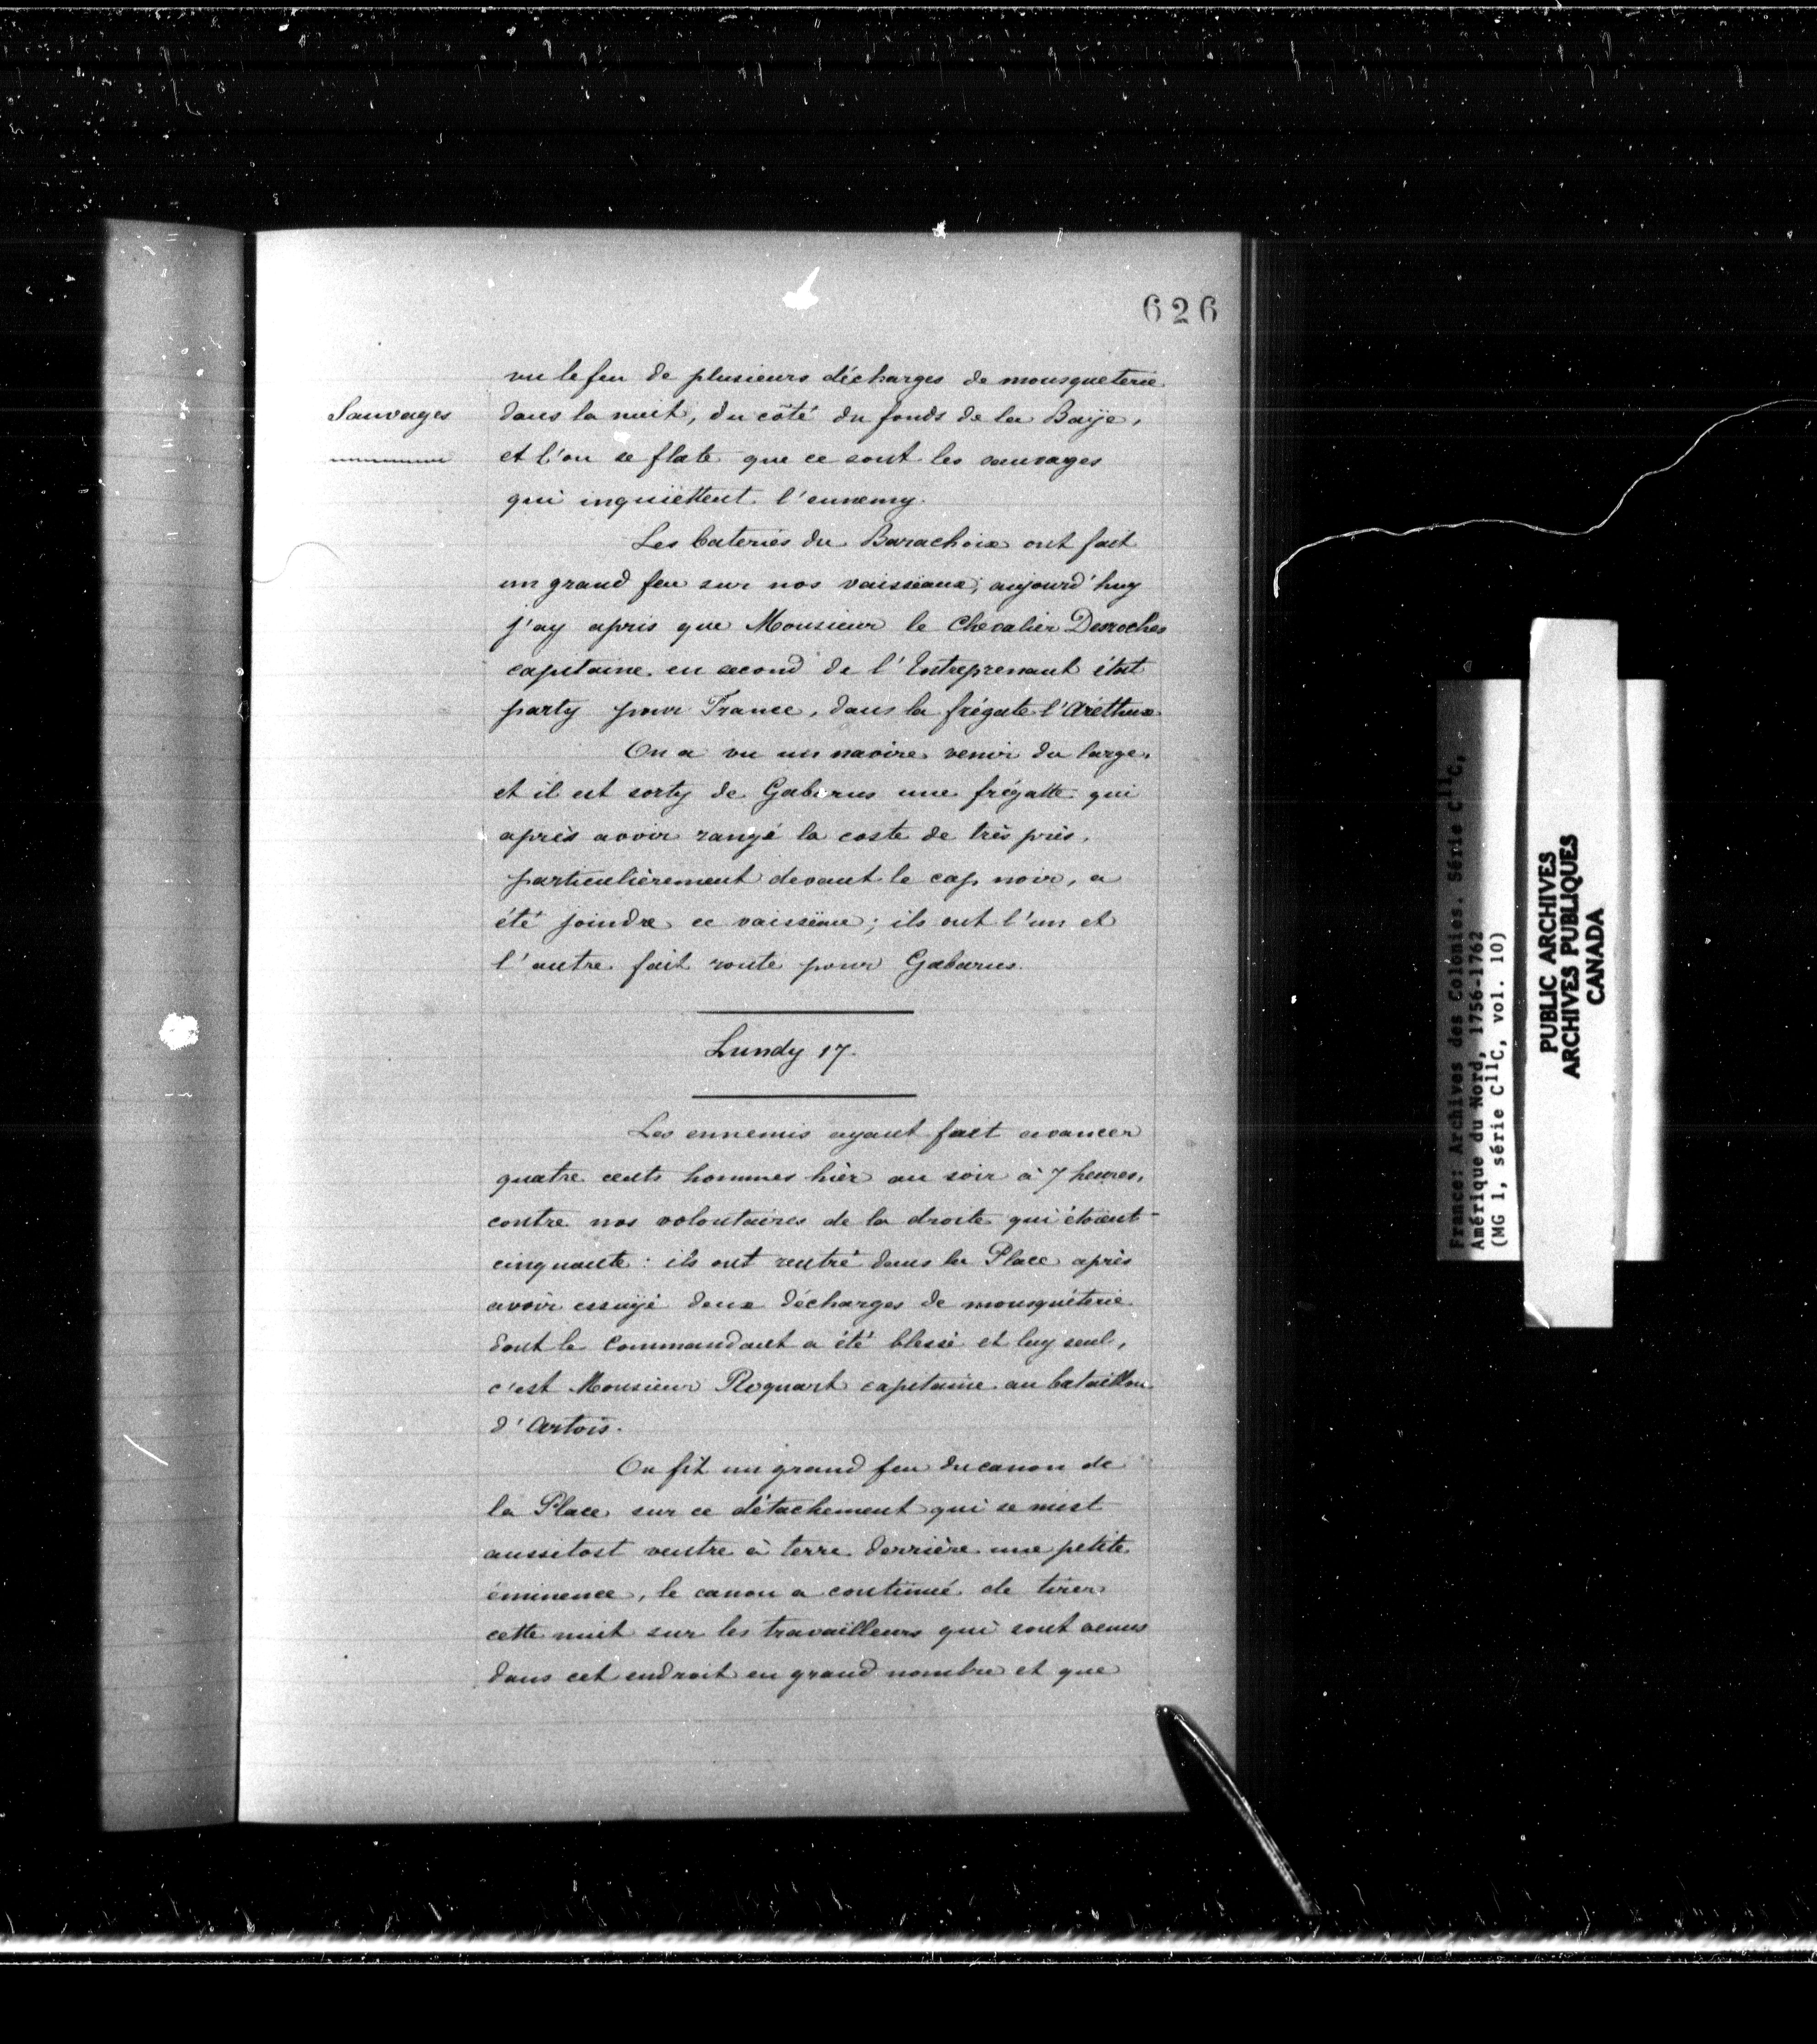 626
vu le feu de plusieurs décharges de mousqueterie
Sauvages
dans la nuit, du côté du fonds de la Baÿe,
et l'on se flate que ce sont les sauvages
qui inquiëttent l'ennemy.
Les bateries du Barachoix ont fait
un grand feu sur nos vaisseaux; aujourd'huy
j'ay apris que Monsieur le Chevalier Desroches
capitaine en second de l'Entreprenant étoit
party pour France, dans la frégate l'Aréthuse
On a vu un navire venir du large,
et il est sorty de Gabarus une frégatte qui
après avoir rangé la coste de très près,
particulièrement devant le cap noir, a
été joindre ce vaisseau; ils ont l'un et
l'autre fait route pour Gabarus.
Lundy 17.
Les ennemis ayant fait avancer
quatre cents hommes hièr au soir à 7 heures,
contre nos volontaires de la droite qui étoient
cinquante: ils ont rentré dans la Place après
avoir essuÿé deux décharges de mousquéterie
dont le Commandant a été blessé et luy seul,
c'est Monsieur Roquart capitaine au bataillon
d'Artois.
On fit un grand feu du canon de
la Place sur ce détachement qui se mist
aussitost ventre à terre derrière une petite
éminence, le canon a continué de tirer
cette nuit sur les travaïlleurs qui sont venus
dans cet endroit en grand nombre et que
France: Archives des Colonies. Série C11C,
Amérique du Nord, 1756-1762
(MG 1, série C11C, vol. 10)
PUBLIC ARCHIVES
ARCHIVES PUBLIQUES
CANADA